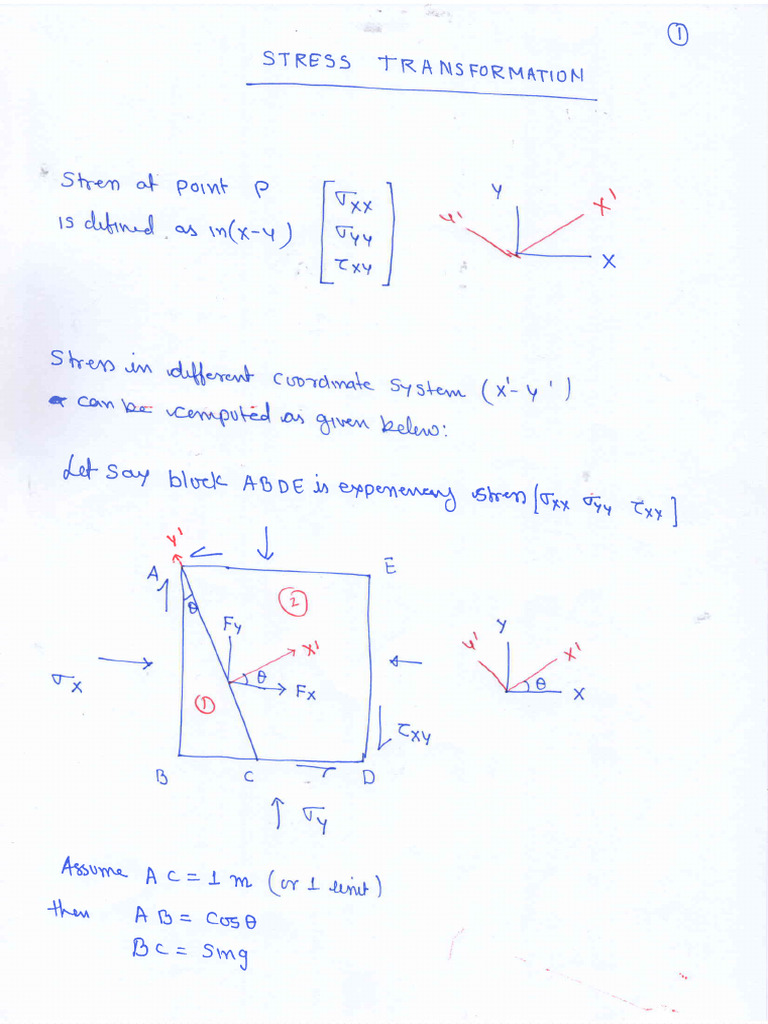 1
STRESS TRANSFORMATION
Stress at point P
is defined as in (x-y)
σxx
σyy
τxy
Y
X'
Y'
X
Stress in different coordinate system (x'-y')
can be computed as given below:
Let say block ABDE is experiencing stress [σxx σyy τxy]
Y'
A
E
θ
2
Fy
X'
θ
Fx
1
σx
τxy
B
C
D
σy
Y
Y'
X'
θ
X
Assume AC = 1 m (or 1 unit)
then AB = cosθ
BC = sinθ